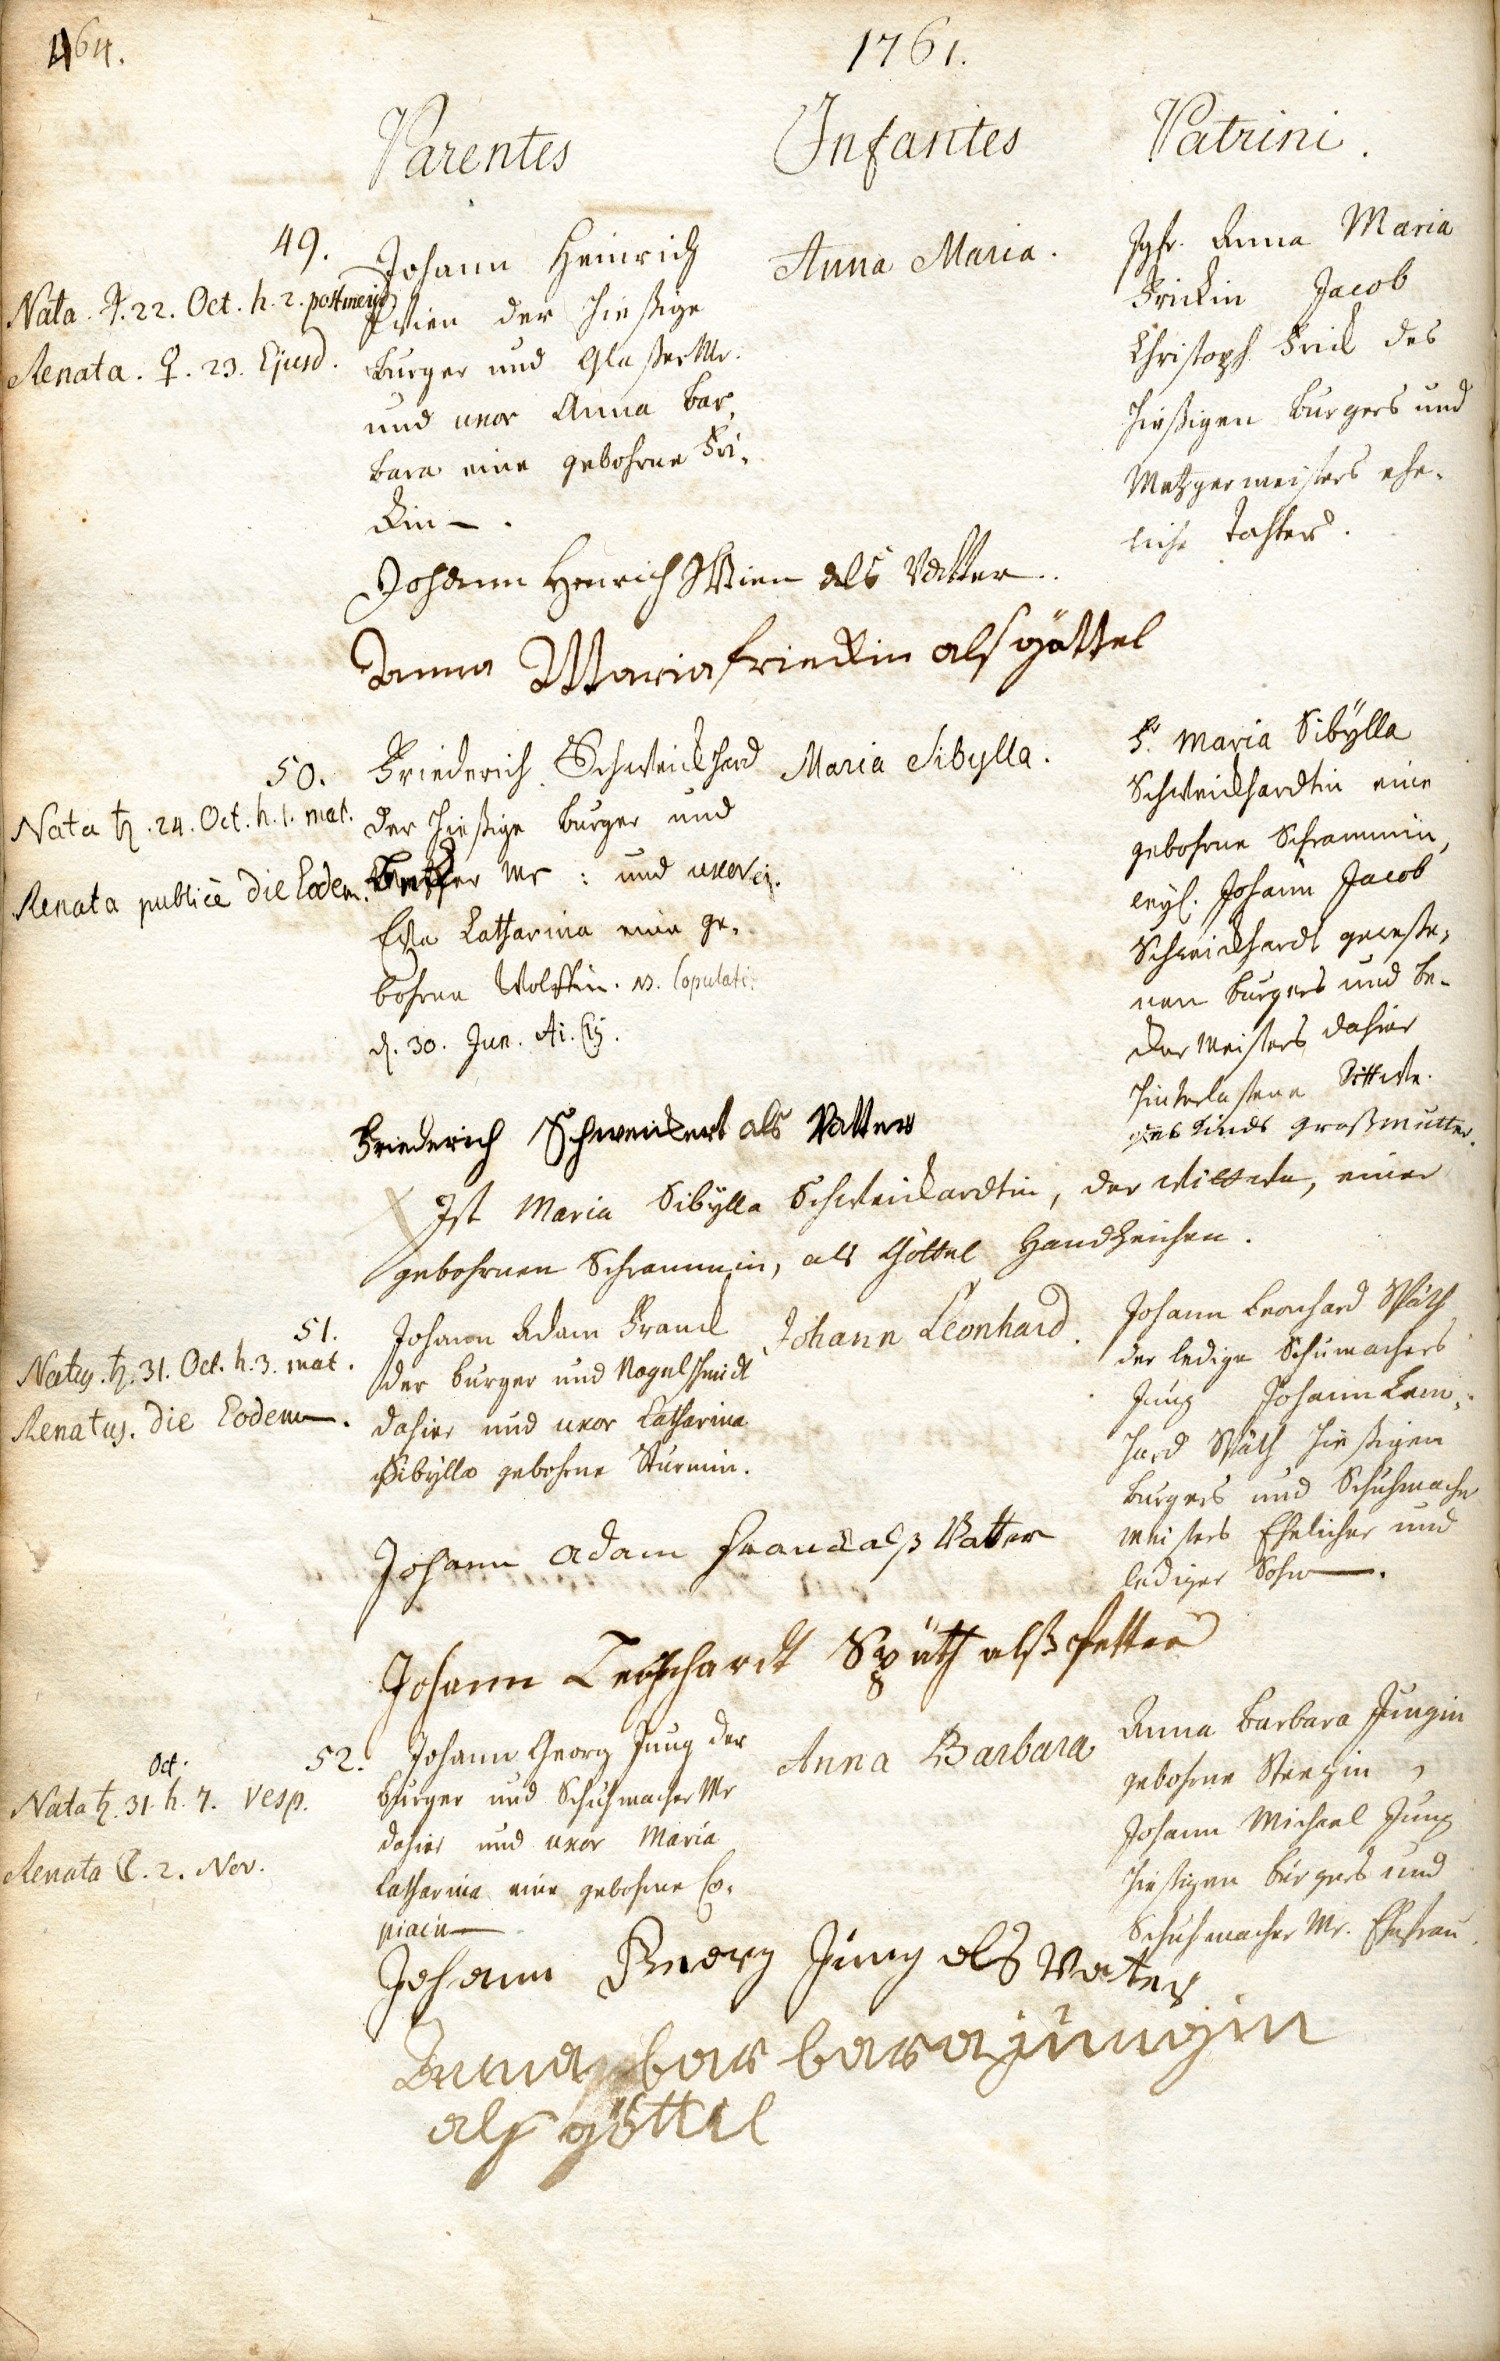 464.
1761.
Parentes
Infantes
Patrini.
49.
Nata. ♃. 22. Oct. h. 2. post merid.
Renata. ♀. 23. Ejusd.
Johann Heinrich
Wien der hießige
burger und Glaßer Mr.
und uxor Anna Bar,
bara eine gebohrne Fri-
ckin.
Anna Maria.
Jgfr. Anna Maria
Frickin Jacob
Christoph Frick des
hießigen burgers und
Metzgermeisters ehe-
liche Tochter.
Johann Henrich Wien als Vatter.
Anna Maria Frieckin als göttel
50.
Nata ♄. 24. Oct. h. 1. mat.
Renata publicè die Eodem.
Friederich Schweickhard
der hießige burger und
Mr: und uxor ej.
Eva Catharina eine ge-
bohrne Wolffin. NB. Copulati
d. 30. Jun. Ai.
Maria Sibylla.
Fr. Maria Sibÿlla
Schweickhardtin eine
gebohrne Schrammin,
weyl. Johann Jacob
Schweickhardt geweße-
nen burgers und be-
cker Meisters dahier
hinterlaßene Wittwe.
des Kinds Großmutter.
Friederich Schweickert als Vatter
X Ist Maria Sibÿlla Schweickardtin, der Wittwe, einer
gebohrnen Schrammin, als Göttel Handzeichen.
51.
Natus. ♄. 31. Oct. h. 3. mat.
Renatus. die Eodem.
Johann Adam Franck
der burger und Nagelschmidt
dahier und uxor Catharina
Sibÿlla gebohrne Sturmin.
Johann Leonhard.
Johann Leonhard Späth
der ledige Schumachers
Jung Johann Leon-
hard Späth hießigen
burgers und Schuhmacher
meisters Ehelicher und
lediger Sohn.
Johann Adam Franck alß Vatter
Johann Leonhardt Späth alß Petter
52.
Oct.
Nata ♄. 31. h. 7. Vesp.
Renata ☾. 2. Nov.
Johann Georg Jung der
burger und Schuhmacher Mr
dahier und uxor Maria
Catharina eine gebohrne
Anna Barbara
Anna Barbara Jungin
gebohrne
Johann Michael Jung
hießigen burgers und
Schuhmacher Mr. Ehefrau.
Johann Georg Jung als Vater
Anna bar bara jungin
als göttel